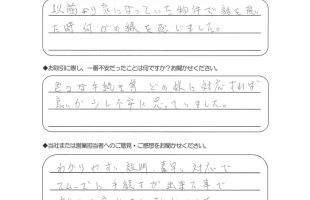 以前より気になっていた物件で話を聞い
た時何かの縁を感じました。
◆お取引に際し、一番不安だったことは何ですか?お聞かせください。
色々な手続き等 どの様に対応すれば
良いか少し不安に思っていました。
◆当社または営業担当者へのご意見・ご感想をお聞かせください。
わかりやすい説明、素早い対応で
スムーズに手続きが出来た事で